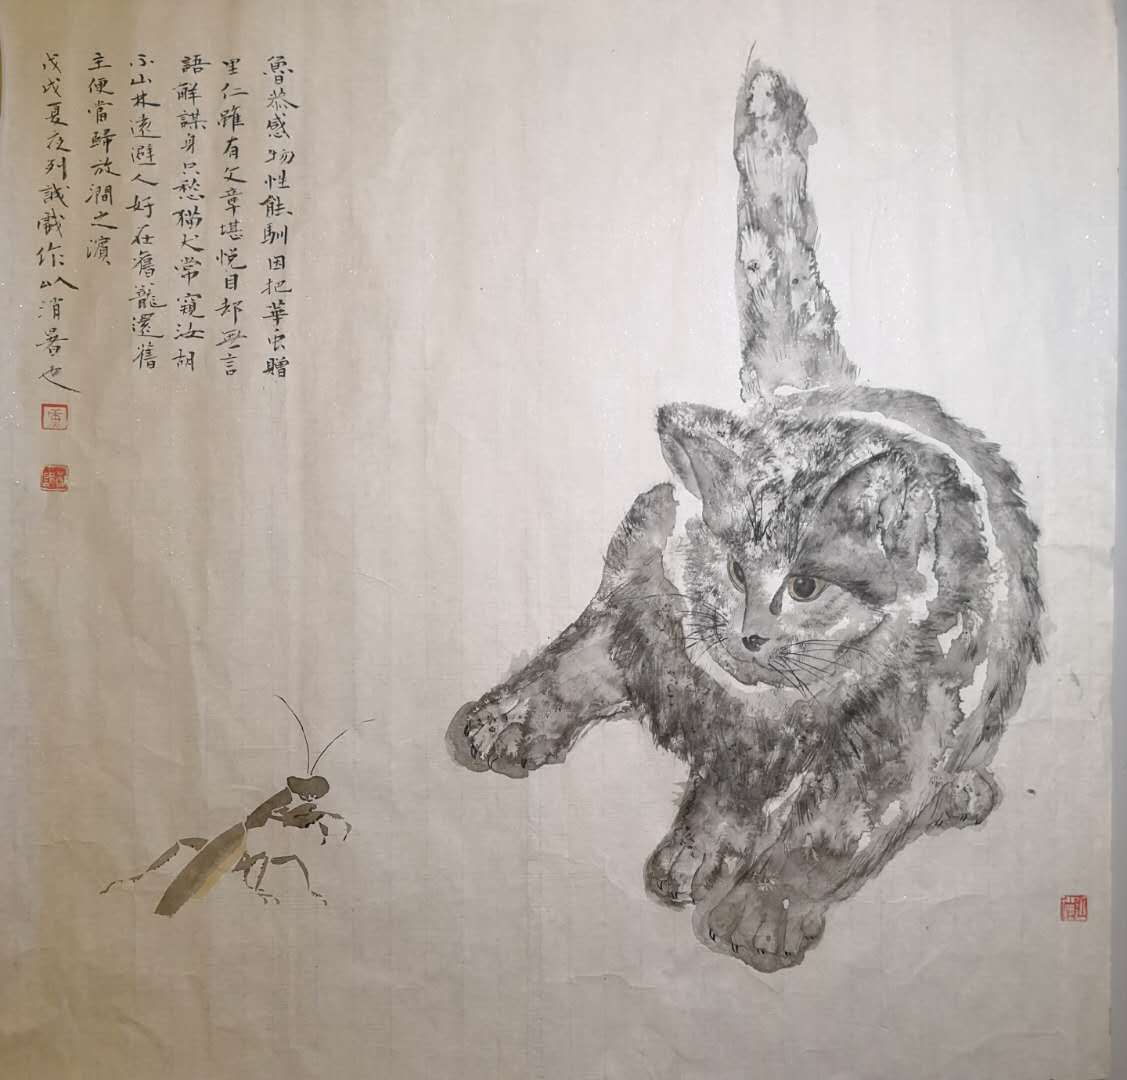 魯恭感物性能馴因把華虫贈
里仁雖有文章堪悅目却無言
語解謀身只愁猫犬常窺汝胡
不山林遠避人好在舊籠還舊
主便當歸放澗之濱
戊戌夏夜列誠戲作以消暑也